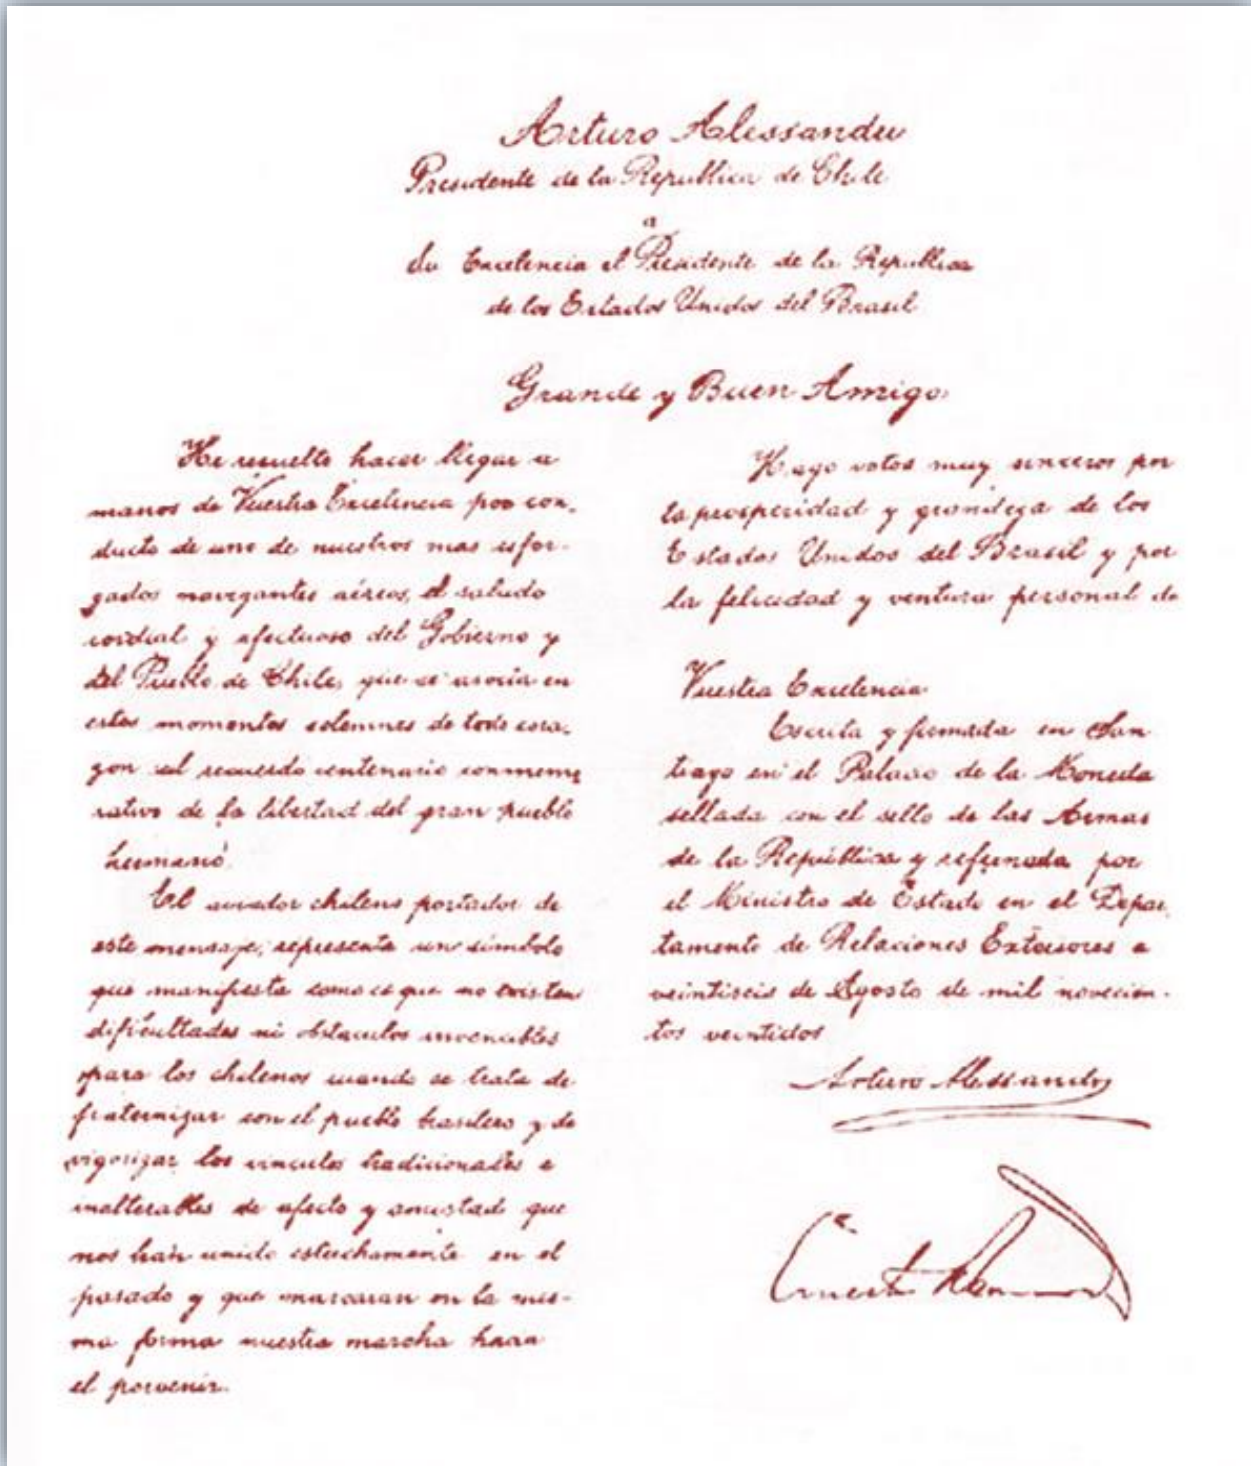 Arturo Alessandri
Presidente de la Republica de Chile
a
Su Excelencia el Presidente de la Republica
de los Estados Unidos del Brasil
Grande y Buen Amigo
He resuelto hacer llegar a
manos de Vuestra Excelencia por con-
ducto de uno de nuestros mas esfor-
zados navegantes aéreos, el saludo
cordial y afectuoso del Gobierno y
del Pueblo de Chile, que se asocia en
estos momentos solemnes de todo cora-
zon al recuerdo centenario conmemo
rativo de la libertad del gran pueblo
hermano.
El aviador chileno portador de
este mensaje, representa un simbolo
que manifiesta como es que no existen
dificultades ni obstaculos invencibles
para los chilenos cuando se trata de
fraternizar con el pueblo brasilero y de
vigorizar los vinculos tradicionales e
inalterables de afecto y amistad que
nos han unido estrechamente en el
pasado y que marcaran en la mis-
ma forma nuestra marcha hacia
el porvenir.
Hago votos muy sinceros por
la prosperidad y grandeza de los
Estados Unidos del Brasil y por
la felicidad y ventura personal de
Vuestra Excelencia
Escrita y firmada en San
tiago en el Palacio de la Moneda
sellada con el sello de las Armas
de la República y refrendada por
el Ministro de Estado en el Depar
tamento de Relaciones Exteriores a
veintiseis de Agosto de mil novecien-
tos veintidos
Arturo Alessandri
Ernesto